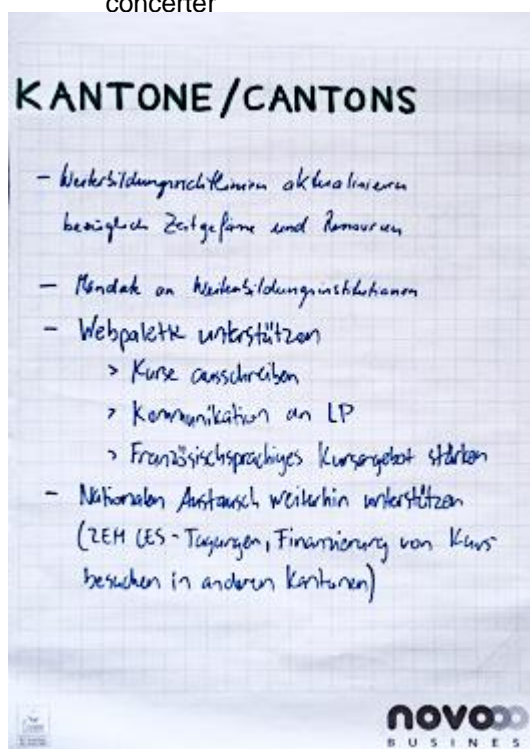 concerter
KANTONE/CANTONS
- Weiterbildungsrichtlinien aktualisieren
bezüglich Zeitgefässe und Ressourcen
- Mandate an Weiterbildungsinstitutionen
- Webpalette unterstützen
> Kurse ausschreiben
> Kommunikation an LP
> Französischsprachiges Kursangebot stärken
- Nationalen Austausch weiterhin unterstützen
(ZEM CES-Tagungen, Finanzierung von Kurs-
besuchen in anderen Kantonen)
novo
BUSINES